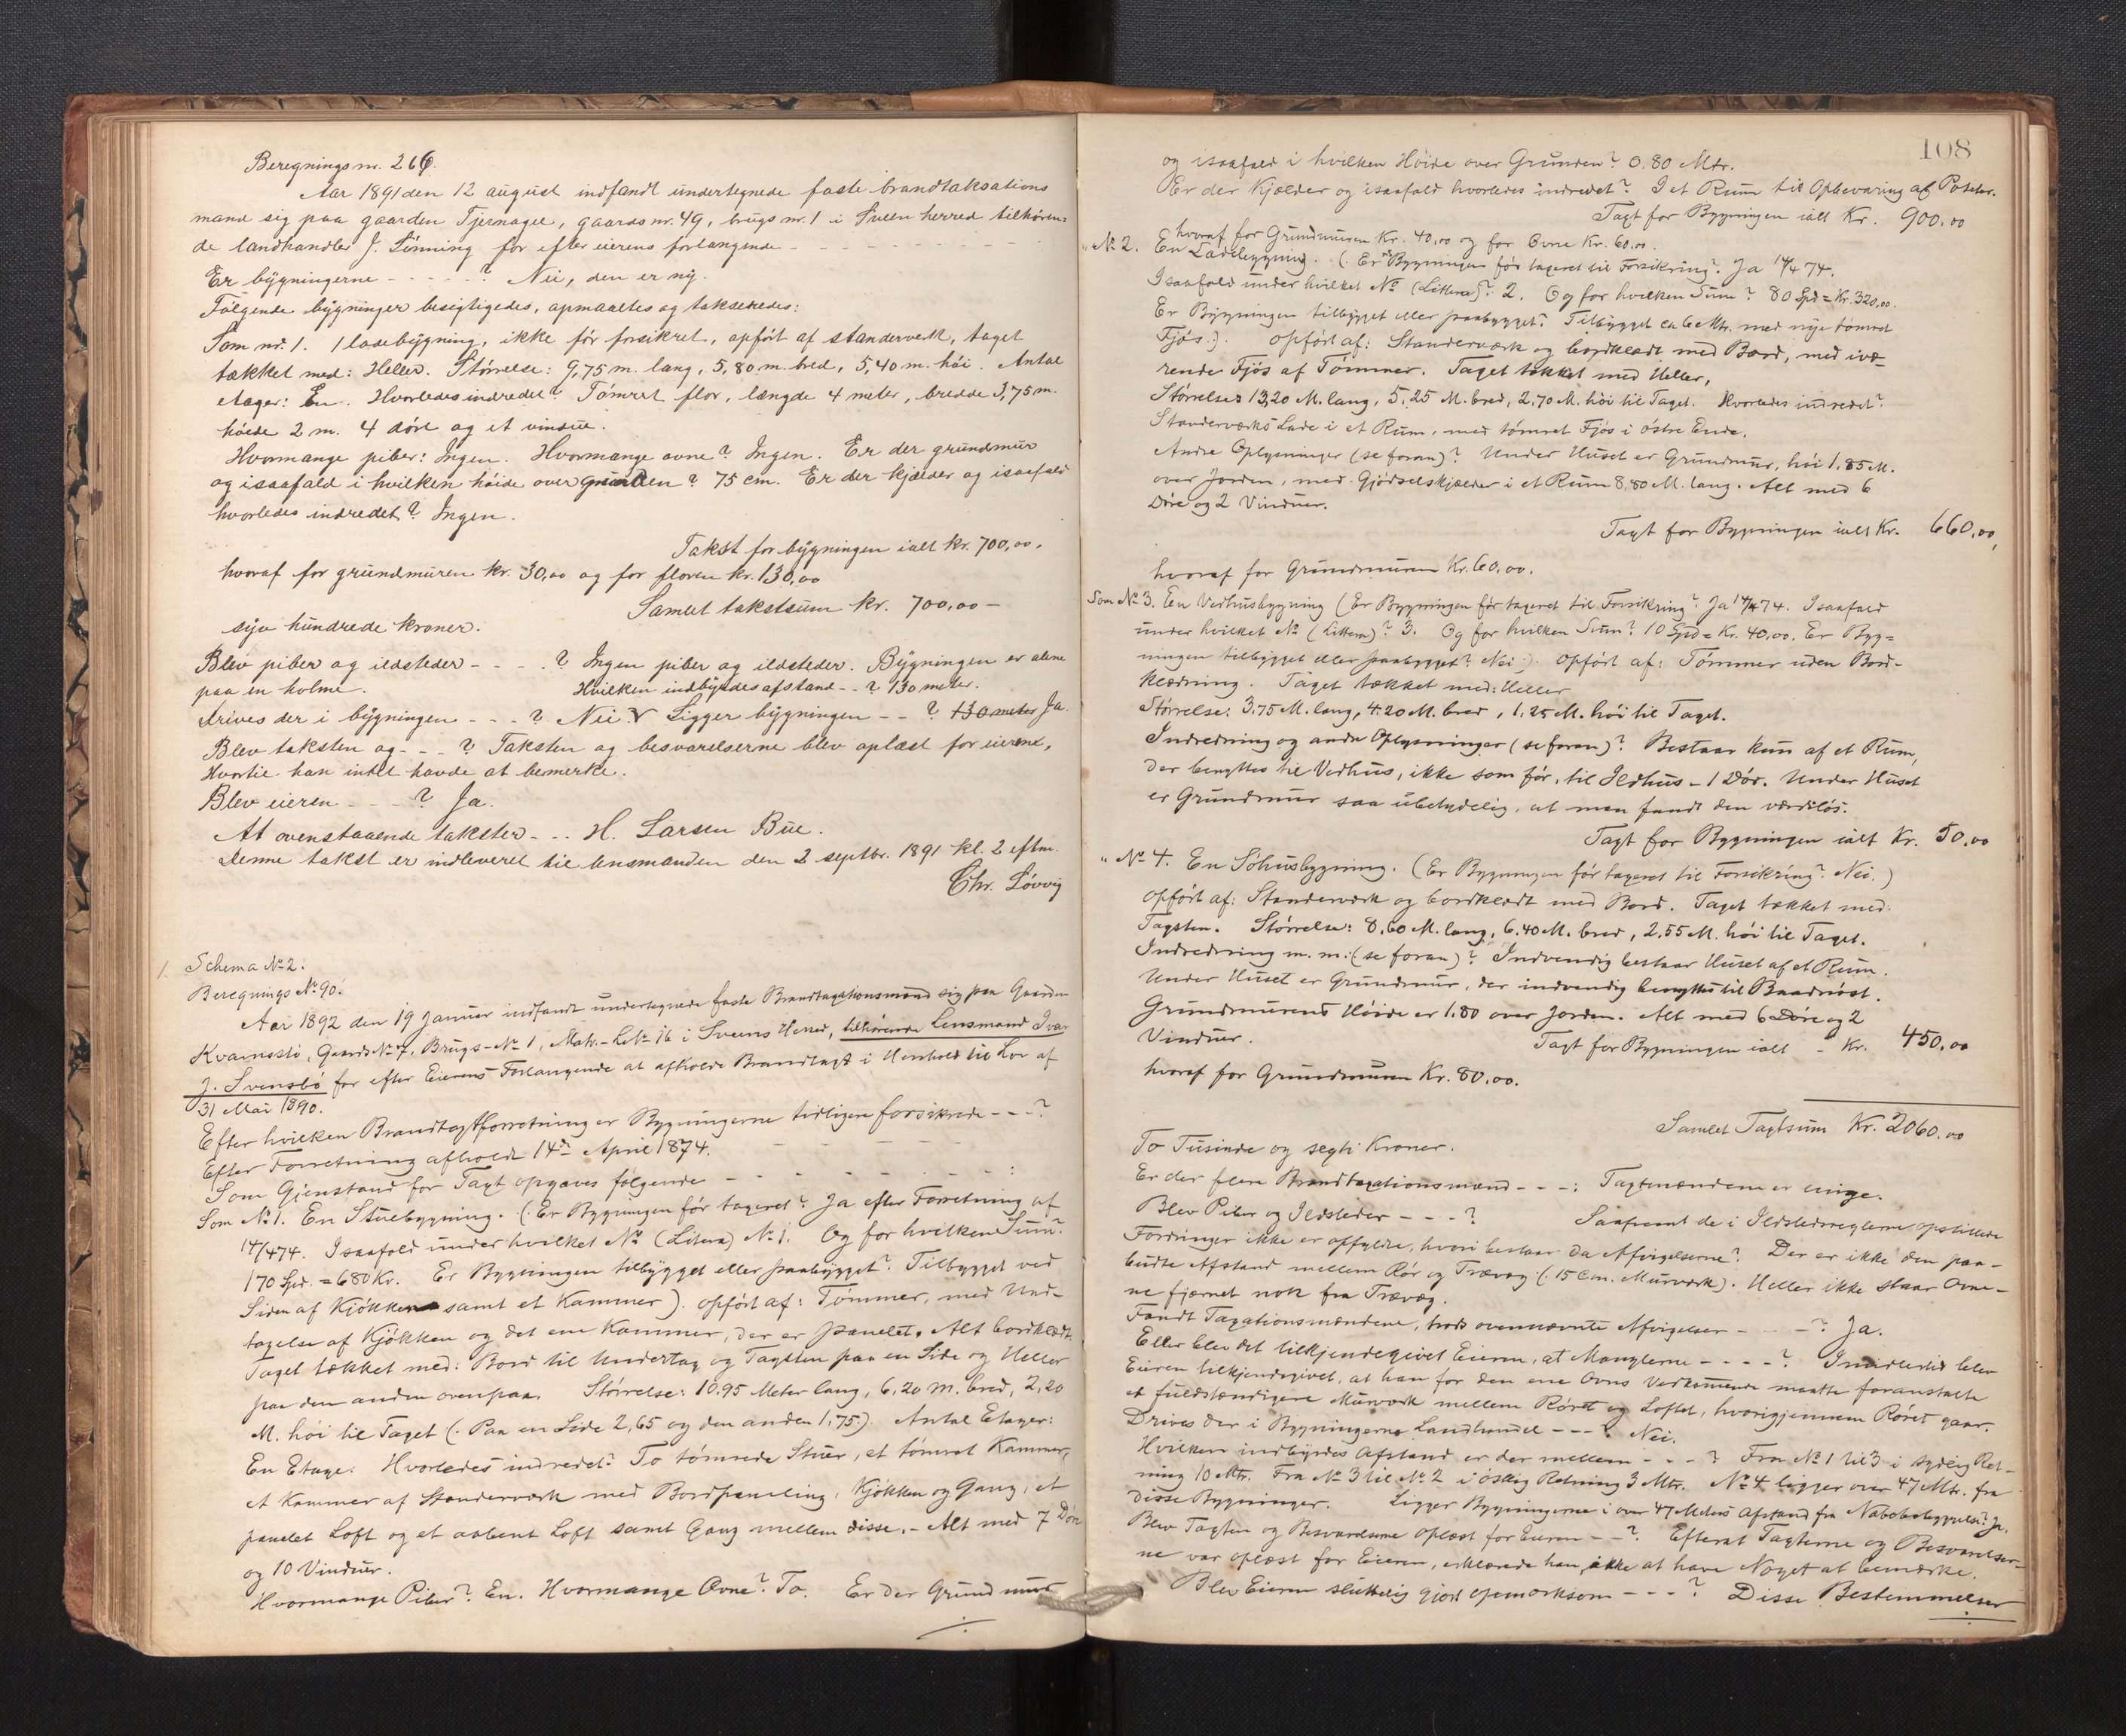 Beregningsnr. 266.
Aar 1891 den 12 august indfandt undertegnede faste brandtaksations
mænd sig paa gaarden Tjernagel, gaards nr. 49, brugs nr. 1 i Sveen herred tilhøren-
de landhandler J. Lønning for efter eierens forlangende - - - - - - -
Er bygningerne - - - - - ? Nei, den er ny.
Følgende bygninger besigtigedes, opmaaltes og takseredes:
Som nr. 1. 1 løebygning, ikke før forsikret, opført af standerverk, taget
tækket med: Heller. Størrelse: 9,75 m. lang, 5,80 m. bred, 5,40 m. høi. Antal
etager: En. Hvorledes indredet? Tømret flor, længde 4 meter, bredde 3,75 m.
høide 2 m. 4 døre og et vindue.
Hvormange piber: Ingen. Hvormange ovne? Ingen. Er der grundmur
og isaafald i hvilken høide over grunden? 75 cm. Er der kjælder og isaafald
hvorledes indredet? Ingen.
Takst for bygningen ialt kr. 700,00.
hvoraf for grundmuren kr. 30,00 og for floren kr. 130,00
Samlet takstsum kr. 700,00 -
syv hundrede kroner.
Blev piber og ildsteder - - - - ? Ingen piber og ildsteder. Bygningen er alene
paa en holme. Hvilken indbyrdes afstand - - ? 130 meter.
Drives der i bygningen - - - ? Nei. Ligger bygningen - - ? 130 meter Ja.
Blev taksten og - - - ? Taksten og besvarelserne blev oplæst for eieren,
Hvortil han intet havde at bemerke.
Blev eieren - - - ? Ja.
At ovenstaaende takster - - . H. Larsen Bue.
Denne takst er indleveret til lensmanden den 2 septbr. 1891 kl. 2 eftm.
Chr. Løvvig
1. Schema № 2.
Beregnings № 90.
Aar 1892 den 19 Januar indfandt undertegnede faste Brandtaxationsmænd sig paa Gaarden
Kvarnsstø, Gaards № 7, Brugs-№ 1, Matr.-L № 16 i Sveens Herred, tilhørende Lensmand Ivar
J. Svensbø for efter Eierens Forlangende at afholde Brandtaxt i Henhold til Lov af
31 Mai 1890.
Efter hvilken Brandtaxtforretning er Bygningerne tidligere forsikrede - - - ?
Efter Forretning afholdt 14de April 1874.
Som Gjenstand for Taxt opgaves følgende - - - - - - - - :
Som № 1. En Stuebygning. (: Er Bygningen før taxeret? Ja efter Forretning af
14/4 74. Isaafald under hvilket № (Litera) № 1. Og for hvilken Sum?
170 Spd. = 680 Kr. Er Bygningen tilbygget eller paabygget? Tilbygget ved
Siden af Kjøkken samt et Kammer). opført af: Tømmer, med Und-
tagelse af Kjøkken og det ene Kammer, der er panelet. Alt bordklædt.
Taget tækket med: Bord til Undertag og Tagsten paa en Side og Heller
paa den anden ovenpaa. Størrelse: 10.95 Meter lang, 6,20 M. bred, 2,20
M. høi til Taget (: Paa en Side 2,65 og den anden 1,75:). Antal Etager:
En Etage. Hvorledes indredet? To tømrede Stuer, et tømret Kammer,
et Kammer af Standerværk med Bordpaneling, Kjøkken og Gang, et
panelet Loft og et aabent Loft samt Gang mellem disse. - Alt med 7 Døre
og 10 Vinduer.
Hvormange Piber? En. Hvormange Ovne? To. Er der Grundmur
108
og isaafald i hvilken Høide over Grunden? 0.80 Mtr.
Er der Kjælder og isaafald hvorledes indredet? I et Rum til Opbevaring af Poteter.
Taxt for Bygningen ialt Kr. 900.00
hvoraf for Grundmuren Kr. 40,00 og for Ovne Kr. 60,00.
" № 2. En Ladebygning. (: Er Bygningen før taxeret til Forsikring? Ja 14/4 74.
Isaafald under hvilket № (Littera)? 2. Og for hvilken Sum? 80 Spd = Kr. 320,00.
Er Bygningen tilbygget eller paabygget? Tilbygget ca 6 Mtr. med nye tømret
Fjøs:). opført af: Standerværk og bordklædt med Bord, med ivæ-
rende Fjøs af Tømmer. Taget tækket med Heller,
Størrelse: 13,20 M. lang, 5,25 M. bred, 2,70 M. høi til Taget. Hvorledes indredet?
Standerværks Lade i et Rum, med tømret Fjøs i østre Ende.
Andre Oplysninger (se foran)? Under Huset er Grundmur, høi 1,85 M.
over Jorden, med Gjødselskjælder i et Rum 8,80 M. lang. Alt med 6
Døre og 2 Vinduer.
Taxt for Bygningen ialt Kr. 660,00,
hvoraf for Grundmuren Kr. 60,00.
Som № 3. En Vedhusbygning (Er Bygningen før taxeret til Forsikring? Ja 14/4 74. Isaafald
under hvilket № (Littera)? 3. Og for hvilken Sum? 10 Spd = Kr. 40,00. Er Byg-
ningen tilbygget eller paabygget? Nei:). opført af: Tømmer uden Bord-
klædning. Taget tækket med: Heller
Størrelse: 3.75 M. lang, 4.20 M. bred, 1,25 M. høi til Taget.
Indredning og andre Oplysninger (se foran)? Bestaar kun af et Rum,
der benyttes til Vedhus, ikke som før, til Ildhus - 1 Dør. Under Huset
er Grundmur saa ubetydelig, at man fandt den værdiløs.
Taxt for Bygningen ialt Kr. 50,00
" № 4. En Søhusbygning. (Er Bygningen før taxeret til Forsikring? Nei.)
opført af: Standerværk og bordklædt med Bord. Taget tækket med:
Tagsten. Størrelse: 8,60 M. lang, 6.40 M. bred, 2.55 M. høi til Taget.
Indredning m. m. (se foran)? Indvendig bestaar Huset af et Rum.
Under Huset er Grundmur, der indvendig benyttes til Baadnøst.
Grundmurens Høide er 1.80 over Jorden. Alt med 6 Døre og 2
Vinduer. Taxt for Bygningen ialt - Kr. 450,00
hvoraf for Grundmuren Kr. 80,00.
Samlet Taxtsum Kr. 2060,00
To Tusinde og segti Kroner.
Er der flere Brandtaxationsmænd - - - : Taxtmændene er enige.
Blev Piber og Ildsteder - - - ? Saafremt de i Ildstedsreglerne opstillede
Fordringer ikke er opfyldte, hvori bestaar da Afvigelserne? Der er ikke den paa-
budte Afstand mellem Rør og Trævæg (: 15 Cm. Murværk). Heller ikke staar Ovne-
ne fjærnet nok fra Trævæg.
Fandt Taxationsmændene, trods ovennævnte Afvigelser - - - ? Ja.
Eller blev det tilkjendegivet Eieren, at Manglerne - - - - ? Imidlertid blev
Eieren tilkjendegivet, at han for den ene Ovns Vedkommende maatte foranstalte
et fuldstændigere Murværk mellem Røret og Loftet, hvorigjennem Røret gaar.
Drives der i Bygningerne Landhandel - - - ? Nei.
Hvilken indbyrdes Afstand er der mellem - - - ? Fra № 1 til 3 i sydlig Ret-
ning 10 Mtr. Fra № 3 til № 2 i østlig Retning 3 Mtr. № 4 ligger over 47 Mtr. fra
disse Bygninger. Ligger Bygningerne i over 47 Meters Afstand fra Nabobebyggelse? Ja.
Blev Taxten og Besvarelserne oplæst for Eieren - - ? Efterat Taxterne og Besvarelser-
ne var oplæst for Eieren, erklærede han, ikke at have Noget at bemærke.
Blev Eieren sluttelig gjort opmærksom - - - ? Disse Bestemmelser